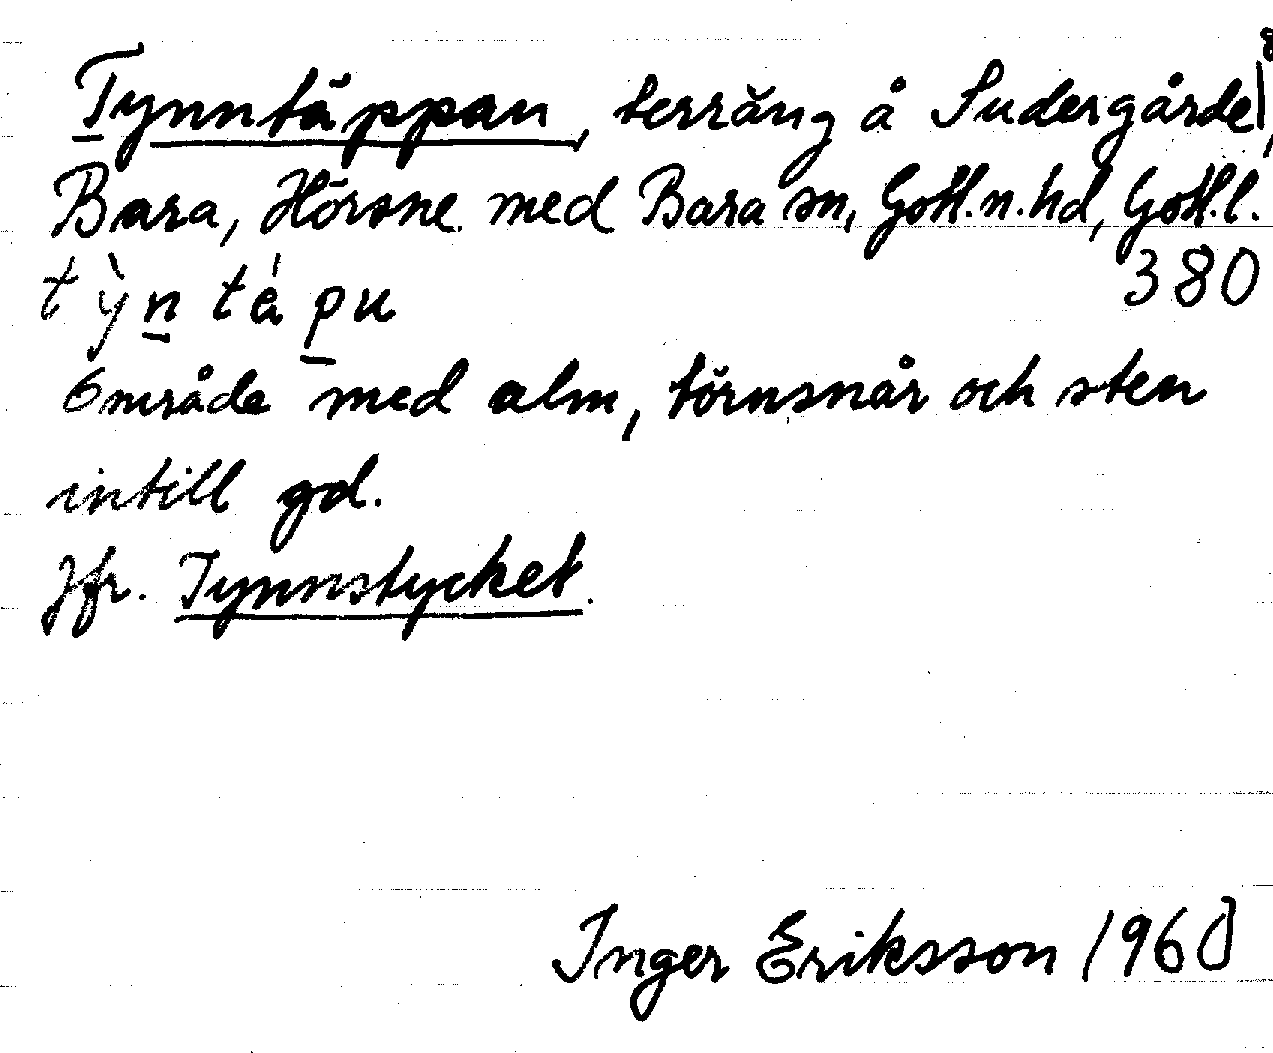 Tynntäppan, terräng å Sudergårde 8,
Bara, Hörsne med Bara sn, Gotl.n.hd, Gotl.l.
tỳn tápu 380
Område med alm, törnsnår och sten
intill gd.
Jfr. Tynnstycket.
Inger Eriksson 1960